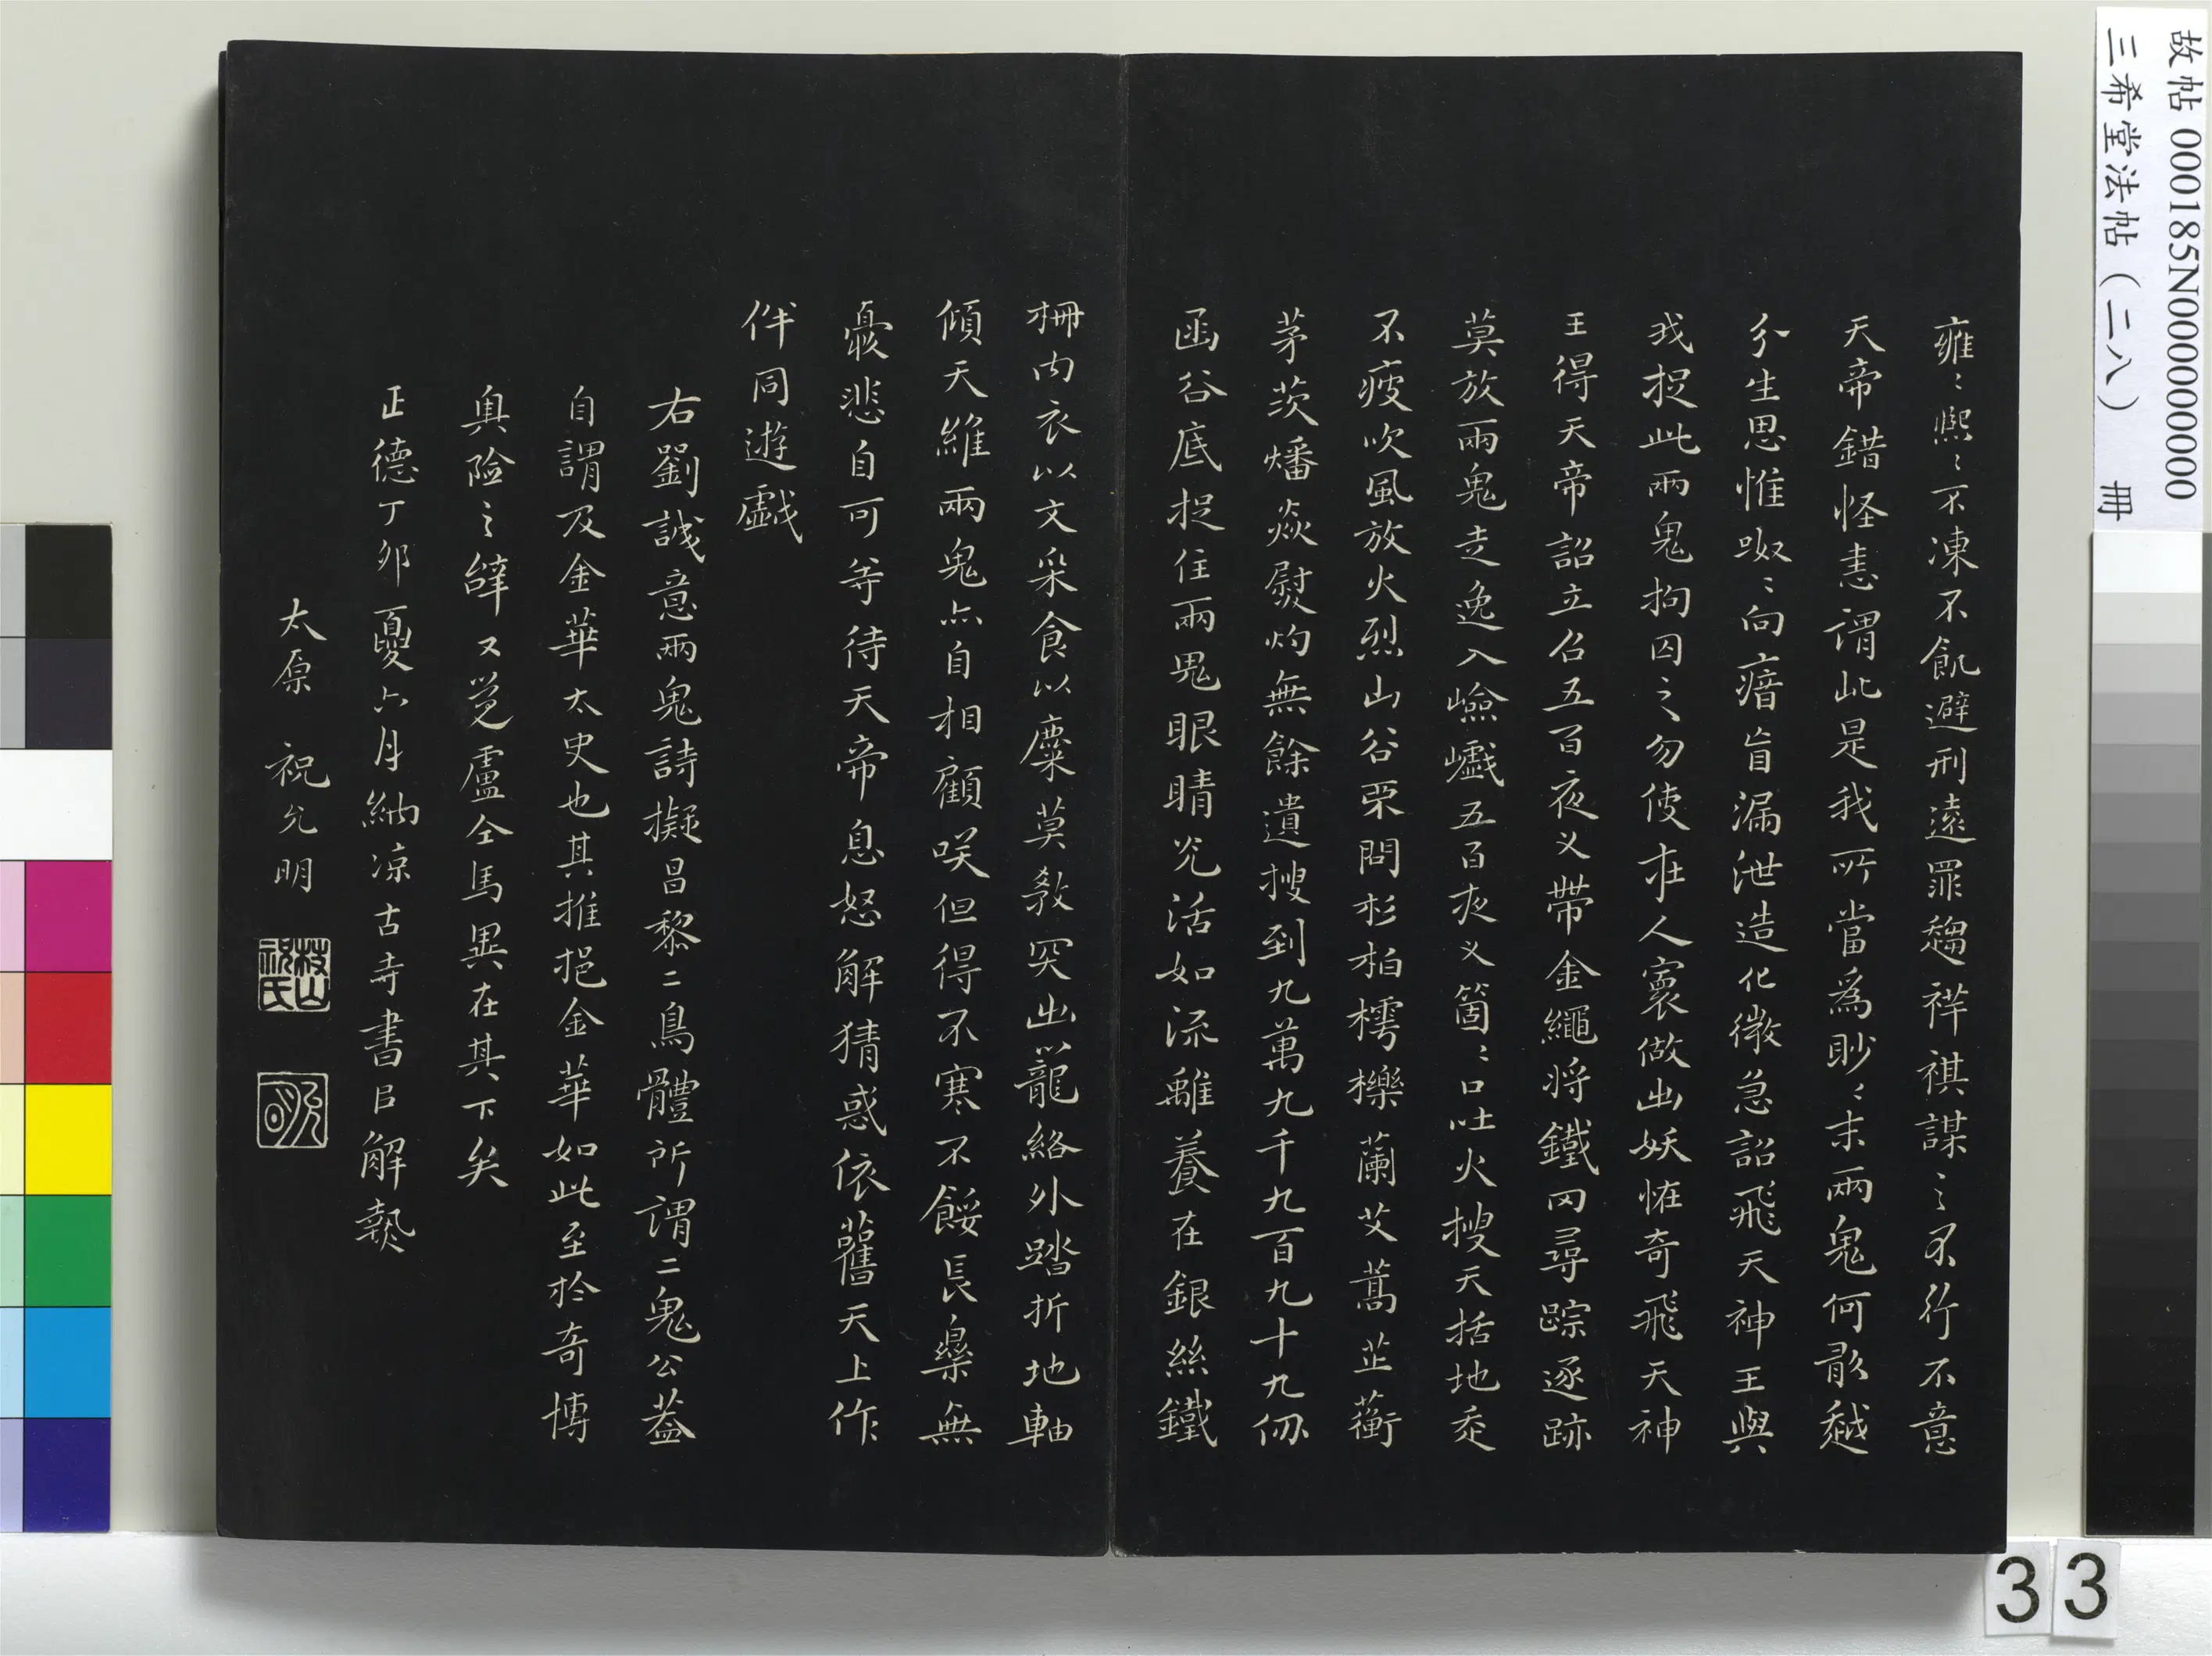 雍〻熙〻不凍不飢避刑遠罪趨祥祺謀之不行不意
天帝錯怪恚謂此是我所當爲眇〻末兩鬼何敢越
分生思惟呶〻向瘖盲漏泄造化微急詔飛天神王與
我捉此兩鬼拘囚之勿使在人寰做出妖怪奇飛天神
王得天帝詔立召五百夜叉帶金繩將鐵网尋踪逐跡
莫放兩鬼走逸入嶮巇五百夜叉箇〻口吐火搜天括地走
不疲吹風放火烈山谷不問杉柏樗櫟蘭艾蒿芷蘅
茅茨燔焱熨灼無餘遺搜到九萬九千九百九十九仞
幽谷底捉住兩鬼眼睛光活如流離養在銀絲鐵
栅内衣以文采食以麋莫教突出籠絡外踏折地軸
傾天維兩鬼亦自相顧咲但得不寒不餒長樂無
憂悲自可等待天帝息怒解猜惑依舊天上作
伴同遊戲
右劉誠意兩鬼詩擬昌黎二鳥體所謂二鬼公蓋
自謂及金華太史也其推挹金華如此至於奇博
奧險之辭又覺盧仝馬異在其下矣
正德丁卯夏六月納凉古寺書㠯解熱
太原 祝允明
枝山祝氏
允明
故帖 000185N000000000
三希堂法帖（二八） 冊
33